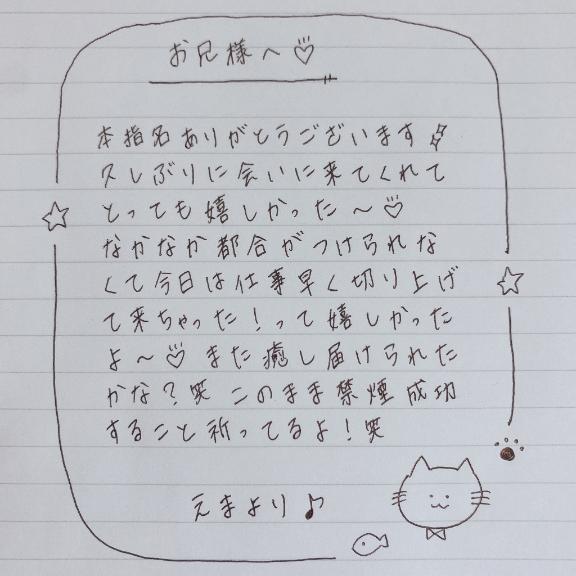 お兄様へ♡
本指名ありがとうございます⚡
久しぶりに会いに来てくれて
とっても嬉しかった〜♡
なかなか都合がつけられな
くて今日は仕事早く切り上げ
て来ちゃった！って嬉しかった
よ〜♡ また癒し届けられた
かな？笑 このまま禁煙成功
すること祈ってるよ！笑
えまより♪